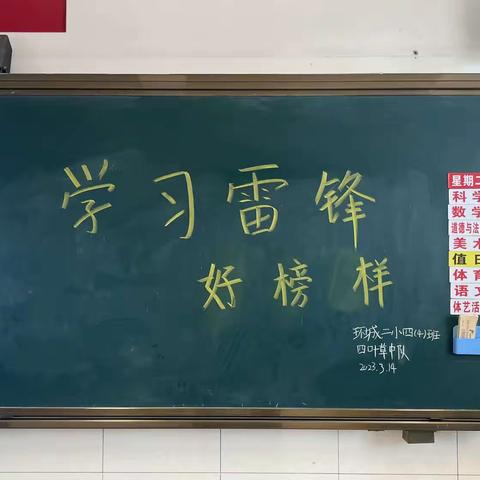 学习雷锋
好榜样
环城二小四(4)班
四叶草中队
2023.3.14
星期二
科学
数学
道德与法
美术
值日
体育
语文
体艺活